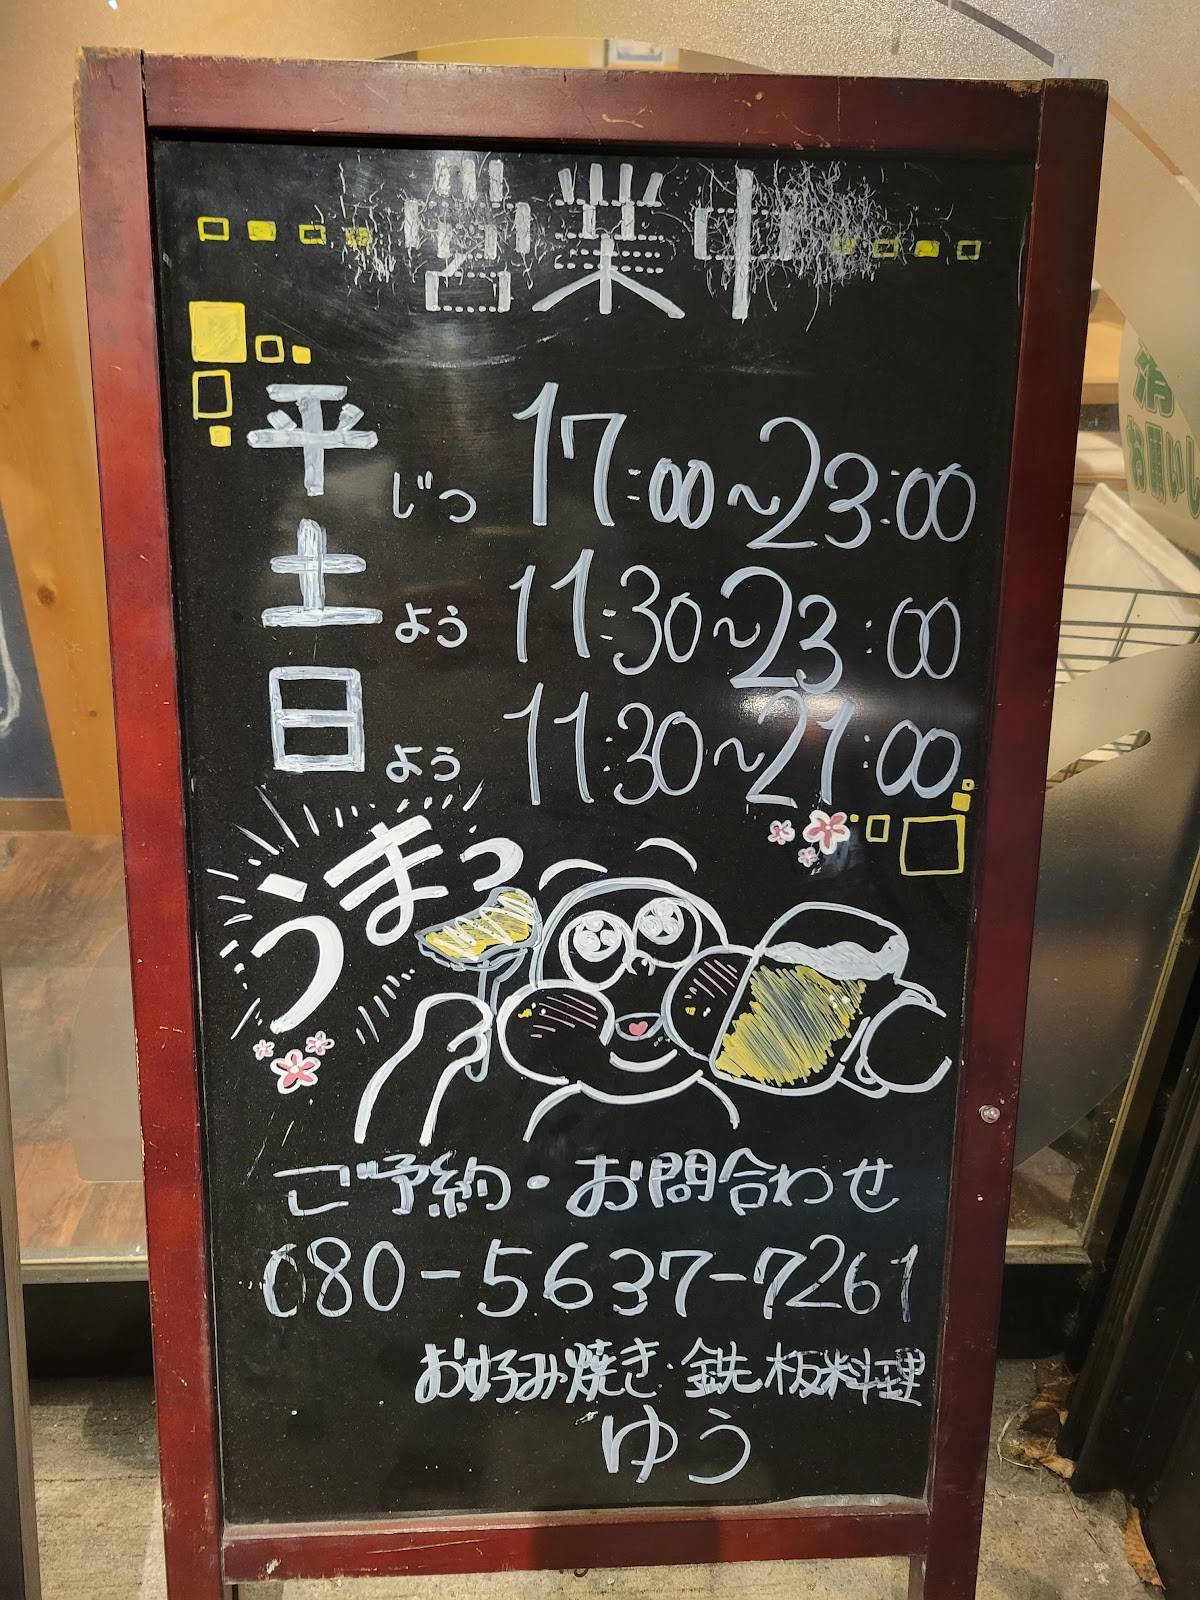 営業中
平じつ 17:00~23:00
土よう 11:30~23:00
日よう 11:30~21:00
うまっ
ご予約・お問合わせ
080-5637-7261
お好み焼き・鉄板料理
ゆう
消
お願いし